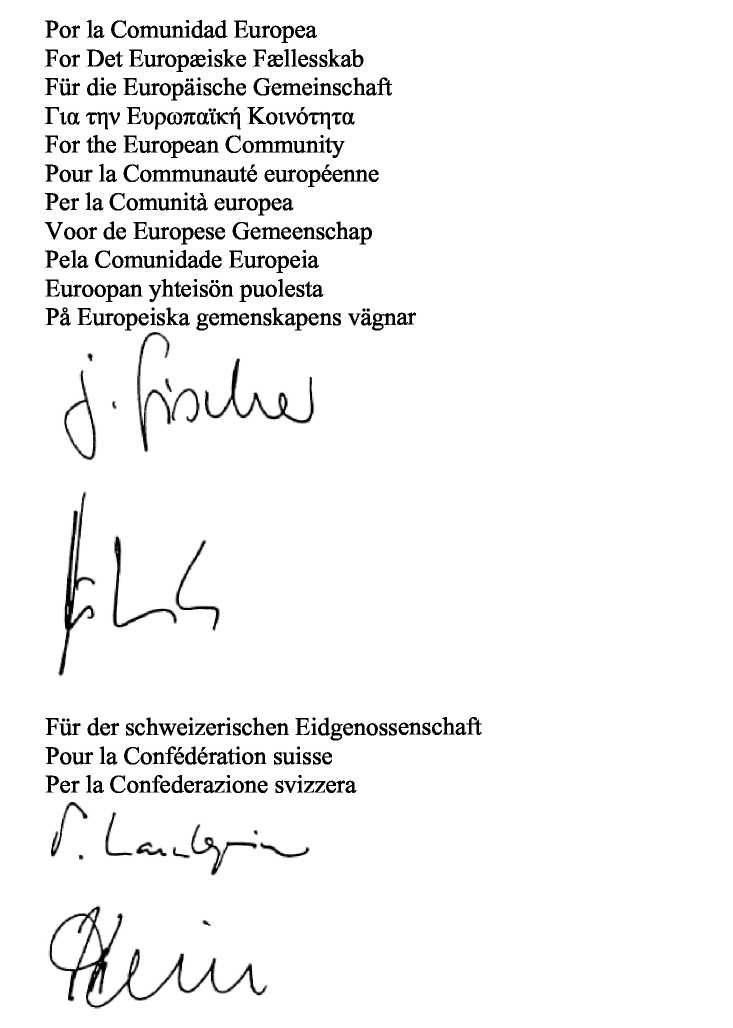 Por la Comunidad Europea
For Det Europæiske Fællesskab
Für die Europäische Gemeinschaft
Για την Ευρωπαϊκή Κοινότητα
For the European Community
Pour la Communauté européenne
Per la Comunità europea
Voor de Europese Gemeenschap
Pela Comunidade Europeia
Euroopan yhteisön puolesta
På Europeiska gemenskapens vägnar
J. Fischer
Für der schweizerischen Eidgenossenschaft
Pour la Confédération suisse
Per la Confederazione svizzera